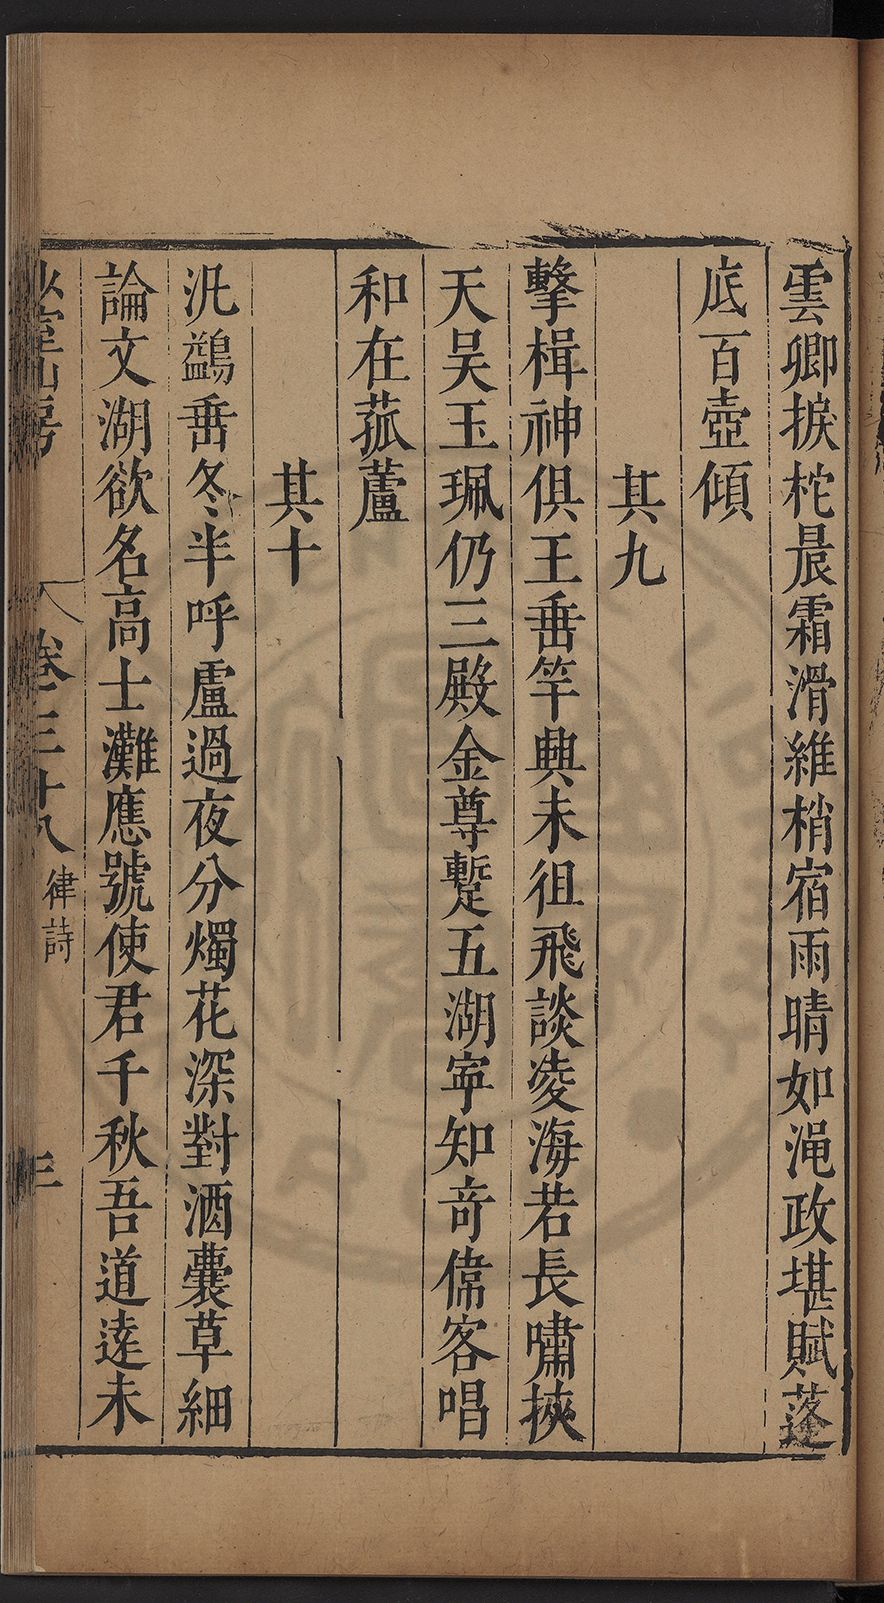 雲卿捩柁晨霜滑維梢宿雨晴如澠政堪賦蓬
底百壺傾
其九
擊楫神俱王垂竿興未徂飛談凌海若長嘯挾
天吴玉珮仍三殿金尊蹔五湖寧知奇偉客唱
和在菰蘆
其十
汎鷁垂冬半呼盧過夜分燭花深對酒囊草細
論文湖欲名高士灘應號使君千秋吾道逹未
卷三十八 律詩 三